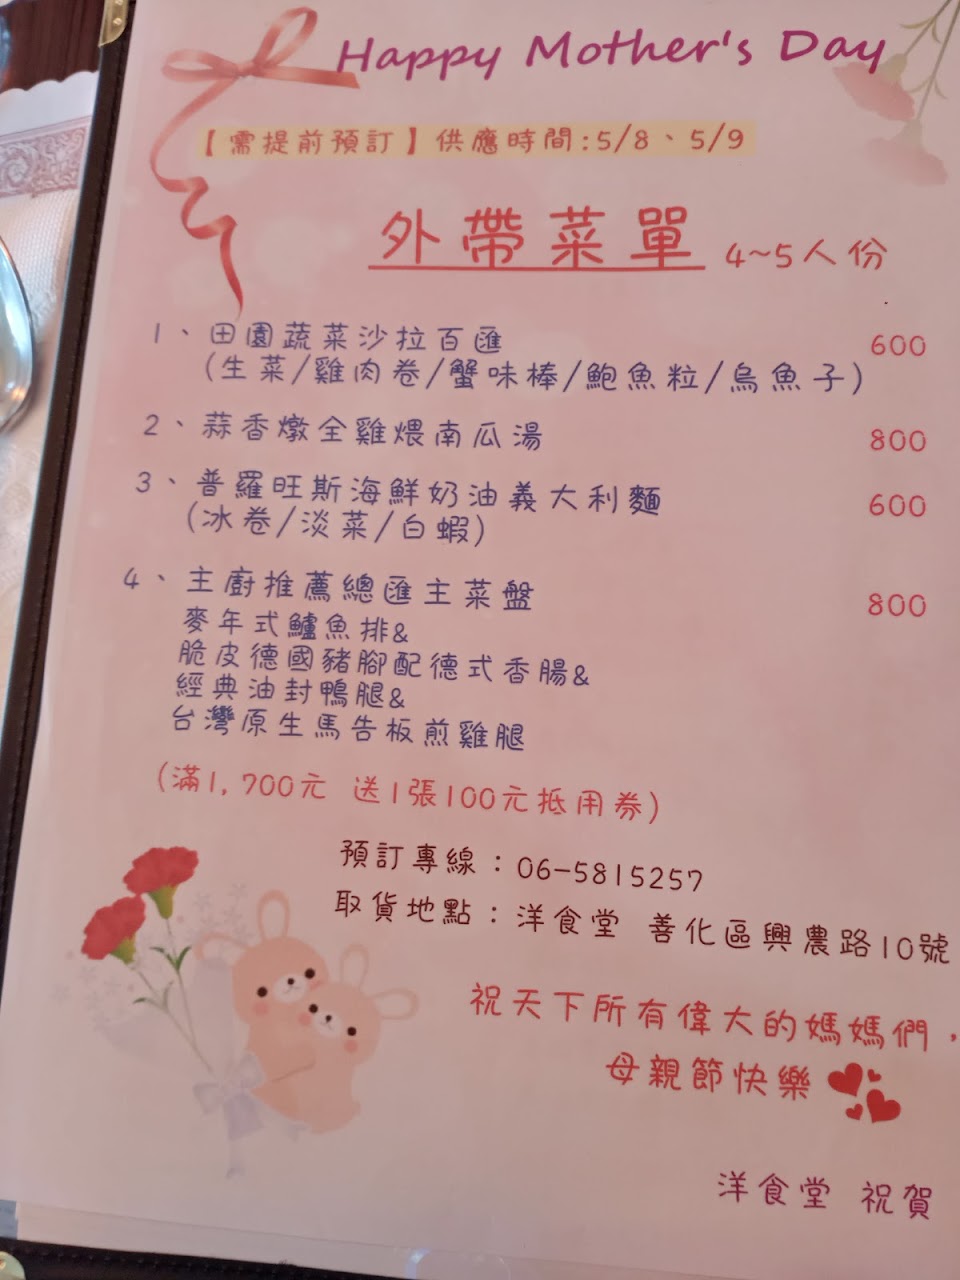 Happy Mother's Day
【需提前預訂】供應時間:5/8、5/9
外帶菜單 4~5人份
1、田園蔬菜沙拉百匯 600
(生菜/雞肉卷/蟹味棒/鮑魚粒/烏魚子)
2、蒜香燉全雞煨南瓜湯 800
3、普羅旺斯海鮮奶油義大利麵 600
(冰卷/淡菜/白蝦)
4、主廚推薦總匯主菜盤 800
麥年式鱸魚排&
脆皮德國豬腳配德式香腸&
經典油封鴨腿&
台灣原生馬告板煎雞腿
(滿1,700元 送1張100元抵用券)
預訂專線：06-5815257
取貨地點：洋食堂 善化區興農路10號
祝天下所有偉大的媽媽們，
母親節快樂
洋食堂 祝賀